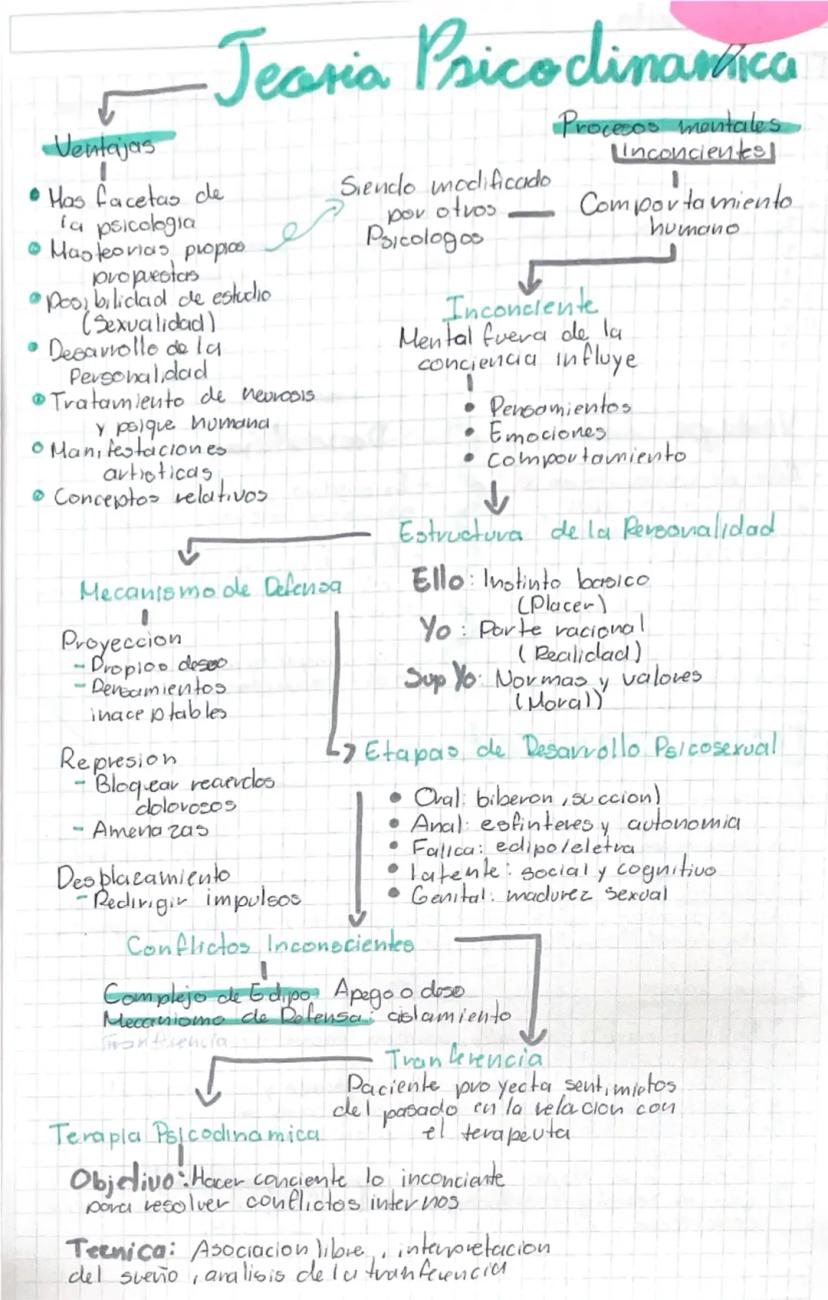 Teoria Psicodinamica
Ventajas
• Mas facetas de
la psicologia
• Mas teorias propias
propuestas
• posibilidad de estudio
(Sexualidad)
• Desarrollo de la
Personalidad
• Tratamiento de neurosis
y psique humana
• Manifestaciones
artisticas
• Conceptos relativos
Siendo modificado
por otros
Psicologos
Procesos mentales
Inconcientes
Comportamiento
humano
Inconciente
Mental fuera de la
conciencia influye
• Pensamientos
• Emociones
• comportamiento
Estructura de la Personalidad
Ello: Instinto basico
(Placer)
Yo: Parte racional
(Realidad)
Sup Yo: Normas y valores
(Moral))
Mecanismo de Defensa
Proyeccion
- Propios deseo
- Pensamientos
inaceptables
Represion
- Bloquear recuerdos
dolorosos
- Amenazas
Desplazamiento
- Redirigir impulsos
Etapas de Desarrollo Psicosexual
• Oral: biberon, succion)
• Anal: esfinteres y autonomia
• Falica: edipo/eletra
• Latente: social y cognitivo
• Genital: madurez sexual
Conflictos Inconscientes
Complejo de Edipo: Apego o deso
Mecanismo de Defensa: aislamiento
Tranferencia
Paciente proyecta sentimietos
del pasado en la relacion con
el terapeuta
Terapia Psicodinamica
Objetivo: Hacer conciente lo inconciante
para resolver conflictos internos
Tecnica: Asociacion libre, interpretacion
del sueño, analisis de la tranferencia